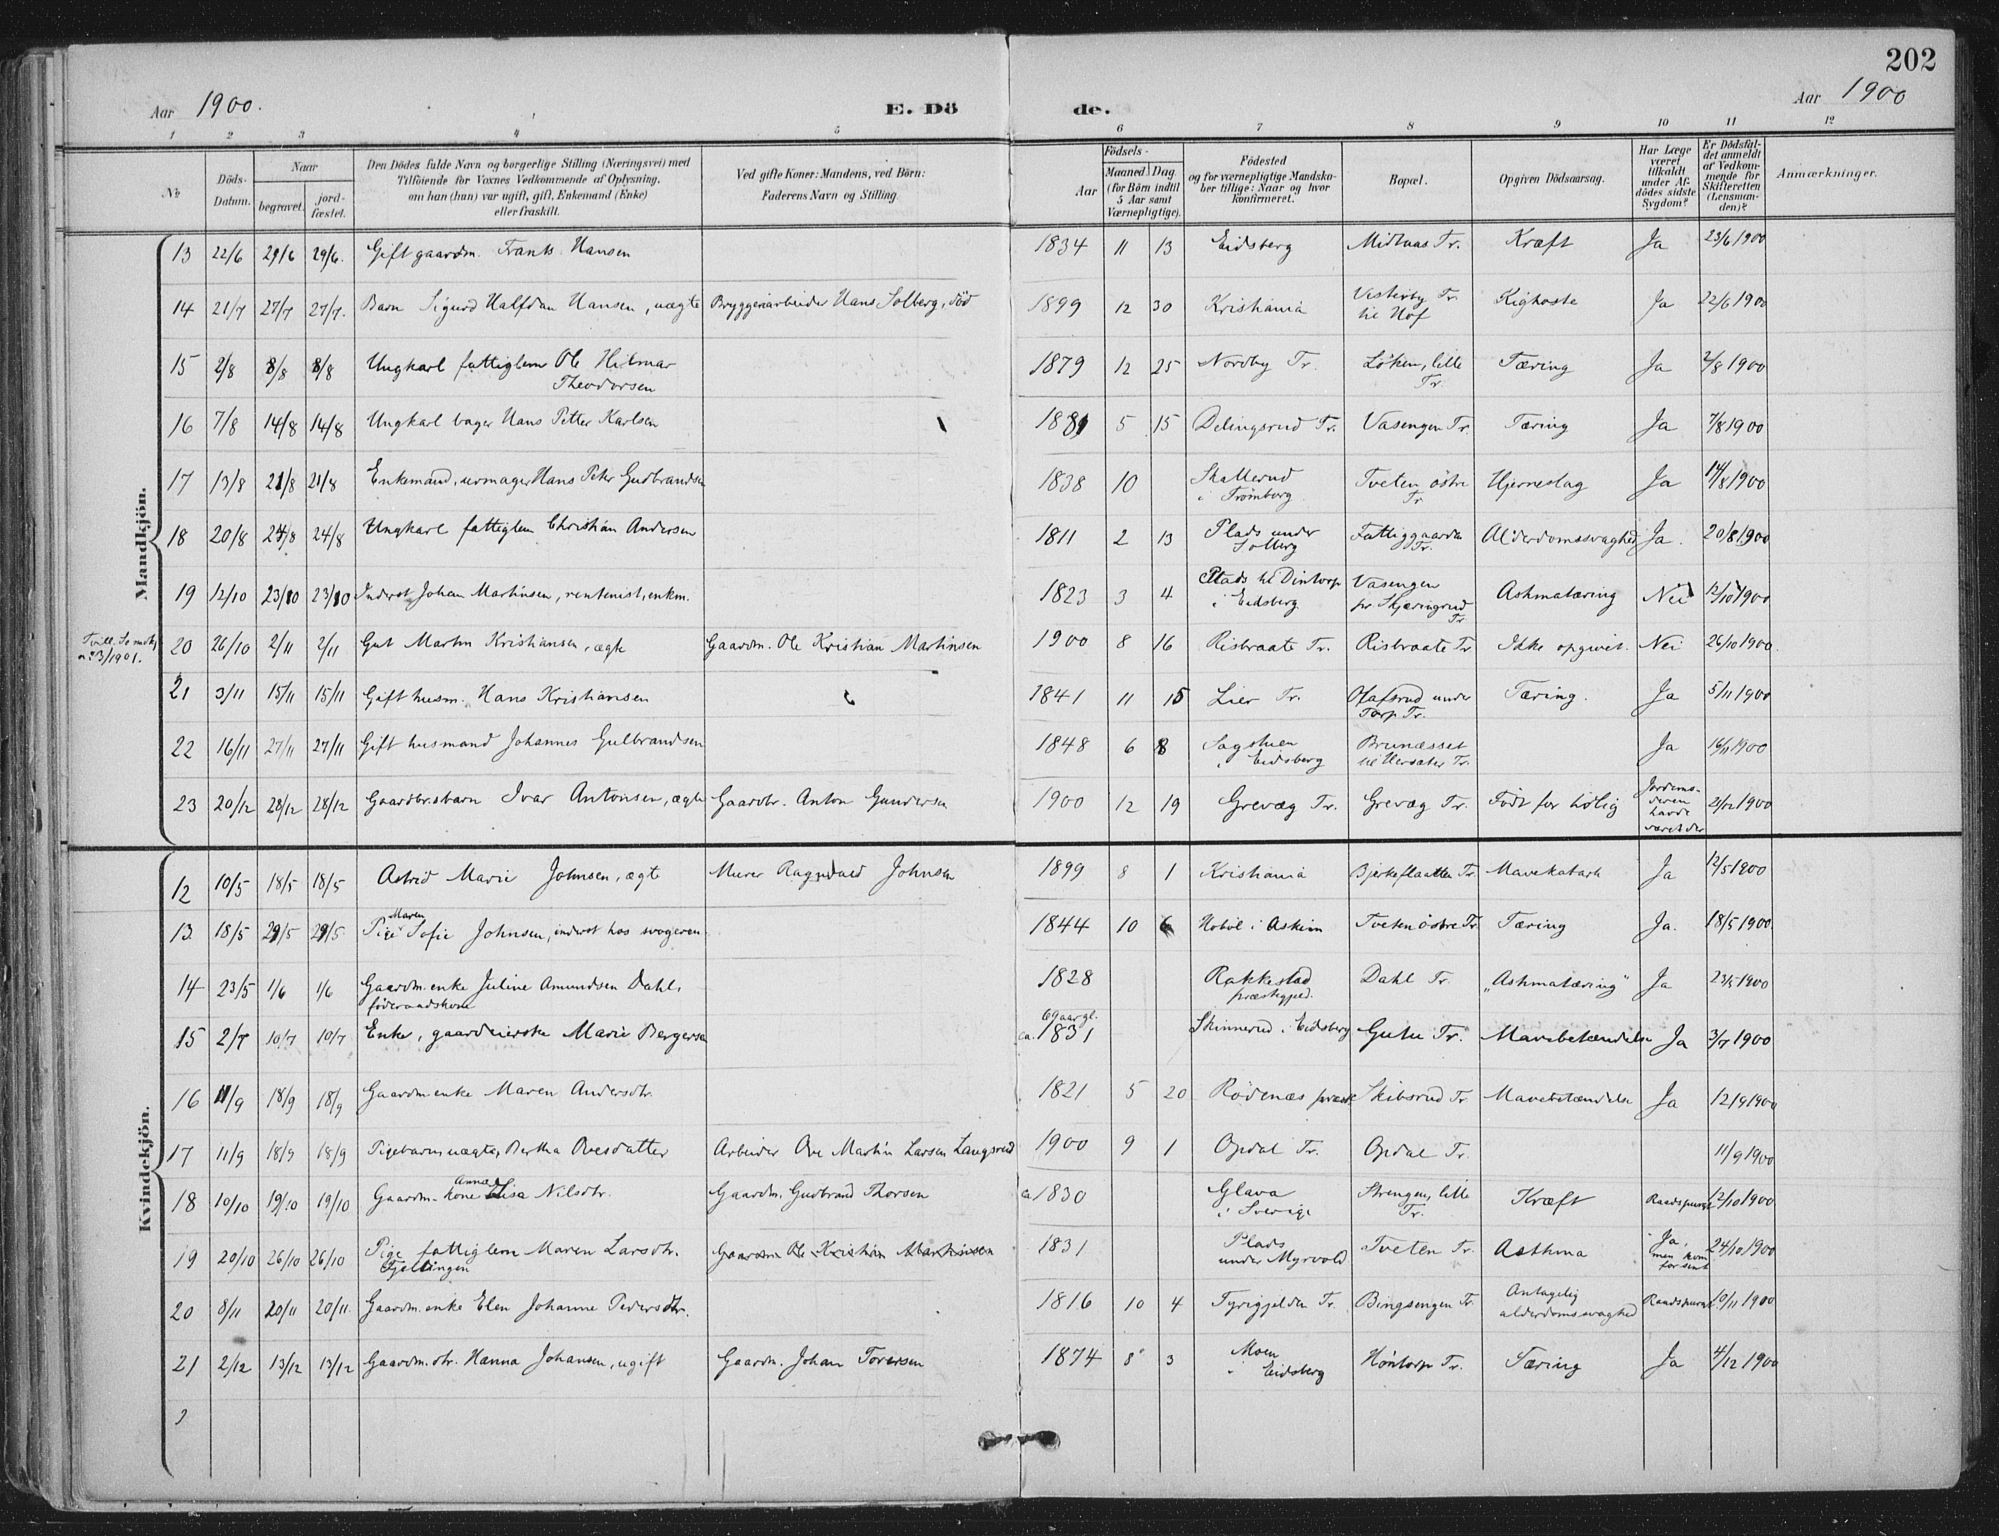 202
Aar 1900.
E. Dö
de.
Aar 1900
1 2 3 4 5 6 7 8 9 10 11 12
No.
Döds-Datum.
Naar
begravet.
jordfæstet.
Den Dödes fulde Navn og borgerlige Stilling (Næringsvei) med
Tilföiende for Voxnes Vedkommende af Oplysning,
om han (hun) var ugift, gift, Enkemand (Enke)
eller fraskilt.
Ved gifte Koner: Mandens, ved Börn:
Faderens Navn og Stilling.
Födsels-
Aar
Maaned Dag
(for Börn indtil
5 Aar samt
Værnepligtige).
Födested
og for værnepligtige Mandskaber tillige: Naar og hvor
konfirmeret.
Bopæl.
Opgiven Dödsaarsag.
Har Læge
været
tilkaldt
under Afdödes sidste
Sygdom?
Er Dödsfaldet anmeldt
af Vedkommende for
Skifteretten
(Lensmanden)?
Anmærkninger.
Mandkjön.
13 22/6 29/6 29/6. Gift gaardm. Frants Hansen 1834 11 13 Eidsberg Midtaas Tr. Kræft Ja 23/6 1900
14 21/7 27/7 27/7. Barn Sigurd Halfdan Hansen, uægte Bryggeriarbeider Hans Solberg, död 1899 12 30 Kristiania Vesterby Tr. Kighoste Ja 22/6 1900
til Hof
15 2/8 8/8 8/8 Ungkarl fattiglem Ole Hilmar 1879 12 25 Nordby Tr. Löken, lille Tæring Ja 2/8 1900
Theodorsen Tr.
16 7/8 14/8 14/8 Ungkarl bager Hans Petter Karlsen 1881 5 15 Delingsrud Tr. Vasengen Tr. Tæring Ja 7/8 1900
17 13/8 21/8 21/8 Enkemand, urmager Hans Peter Gudbrandsen 1838 10 Skatterud Tveten östre Hjerneslag Ja 14/8 1900
i Trömborg Tr
18 20/8 24/8 24/8 Ungkarl fattiglem Christian Andersen 1811 2 13 Plads under Fattiggaarden Alderdomssvaghed Ja. 20/8 1900
Solberg Tr.
19 12/10 23/10 23/10 Inderst Johan Martinsen, rentenist, enkm. 1823 3 4 Plads til Dintorp Vasengen Asthmatæring Nei 12/10 1900
i Eidsberg. pr. Skjæringrud
Tr
n: 3/1901.
20 26/10 2/11 2/11 Gut Martin Kristiansen, ægte Gaardm. Ole Kristian Martinsen 1900 8 16 Risbraate Tr. Risbraate Tr Ikke opgivet. Nei 26/10 1900.
21 3/11 15/11 15/11 Gift husm. Hans Kristiansen 1841 11 15 Lier Tr. Olafsrud under Tæring. Ja 5/11 1900
Torp Tr.
22 16/11 27/11 27/11 Gift husmand Johannes Gulbrandsen 1848 6 8 Sagstuen Brunæsset Ja 16/11 1900
i Eidsberg Tr.
23 20/12 28/12 28/12 Gaardbr.sbarn Ivar Antonsen, ægte Gaardbr. Anton Gundersen 1900 12 19 Grevæg Tr. Grevæg Tr. Födt for tidlig Jordemoderen havde været der 21/12 1900
Kvindekjön.
12 10/5 18/5 18/5 Astrid Marie Johnsen, ægte Murer Ragnvald Johnsen 1899 8 1 Kristiania Bjerkeflaatten Tr. Mavekatarh Ja 12/5 1900
Maren
13. 18/5 29/5 29/5 Pige Sofie Johnsen, inderst hos svogeren 1844 10 6 Hoböl i Askim Tveten östre Tr. Tæring Ja. 18/5 1900
14 23/5 1/6 1/6 Gaardm.enke Juline Amundsen Dahl, 1828 Rakkestad Dahl Tr. "Asthmatæring" Ja 23/5 1900
föderaadskone præstegjeld.
69 aar gl.
15 2/7 10/7 10/7 Enke, gaardeierske Marie Bergersen ca. 1831 Skinnerud i Eidsberg Gutu Tr. Mavebetændelse Ja 3/7 1900
16 11/9 18/9 18/9 Gaardm.enke Maren Andersdtr. 1821 5 20 Rödenæs præst Skibsrud Tr. Mavebetændelse Ja 12/9 1900
17 11/9 18/9 18/9 Pigebarn uægte, Bertha Ovesdatter Arbeider Ove Martin Larsen Langsrud 1900 9 1 Opdal Tr. Opdal Tr. 11/9 1900
Anna
18 10/10 19/10 19/10 Gaardm.kone Elisa Nilsdtr. Gaardm. Gudbrand Thorsen ca 1830 Glava Strengen, lille Kræft Raadspurgt 12/10 1900
i Sverige Tr.
19 20/10 26/10 26/10 Pige fattiglem Maren Larsdtr. Gaardm Ole Kristian Martinsen 1831 Plads Tveten Tr. Asthma Ja, men kom for sent 24/10 1900
Fjellingen under Myrvold
20 8/11 20/11 20/11. Gaardm.enke Elen Johanne Pedersdtr. 1816 10 4 Tyrigjelden Tr. Bingsengen Tr. Antagelig Raadspurgt 10/11 1900
alderdomssvaghed
21 2/12 13/12 13/12 Gaardm.dtr. Hanna Johansen, ugift Gaardm. Johan Torersen 1874 8 3 Moen Höntorp Tr. Tæring Ja 4/12 1900
i Eidsberg